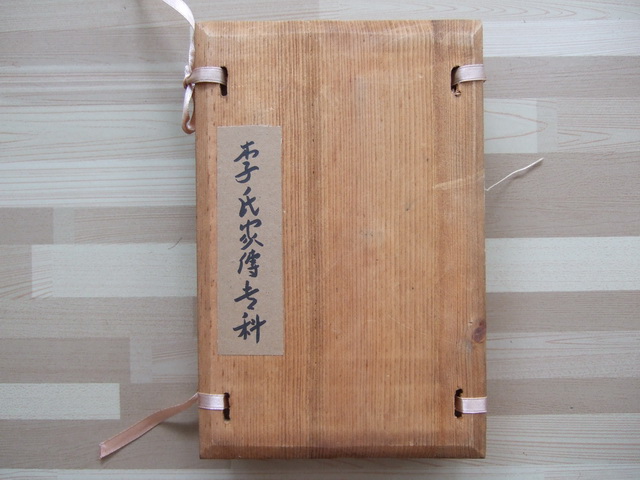 李氏家傳专科